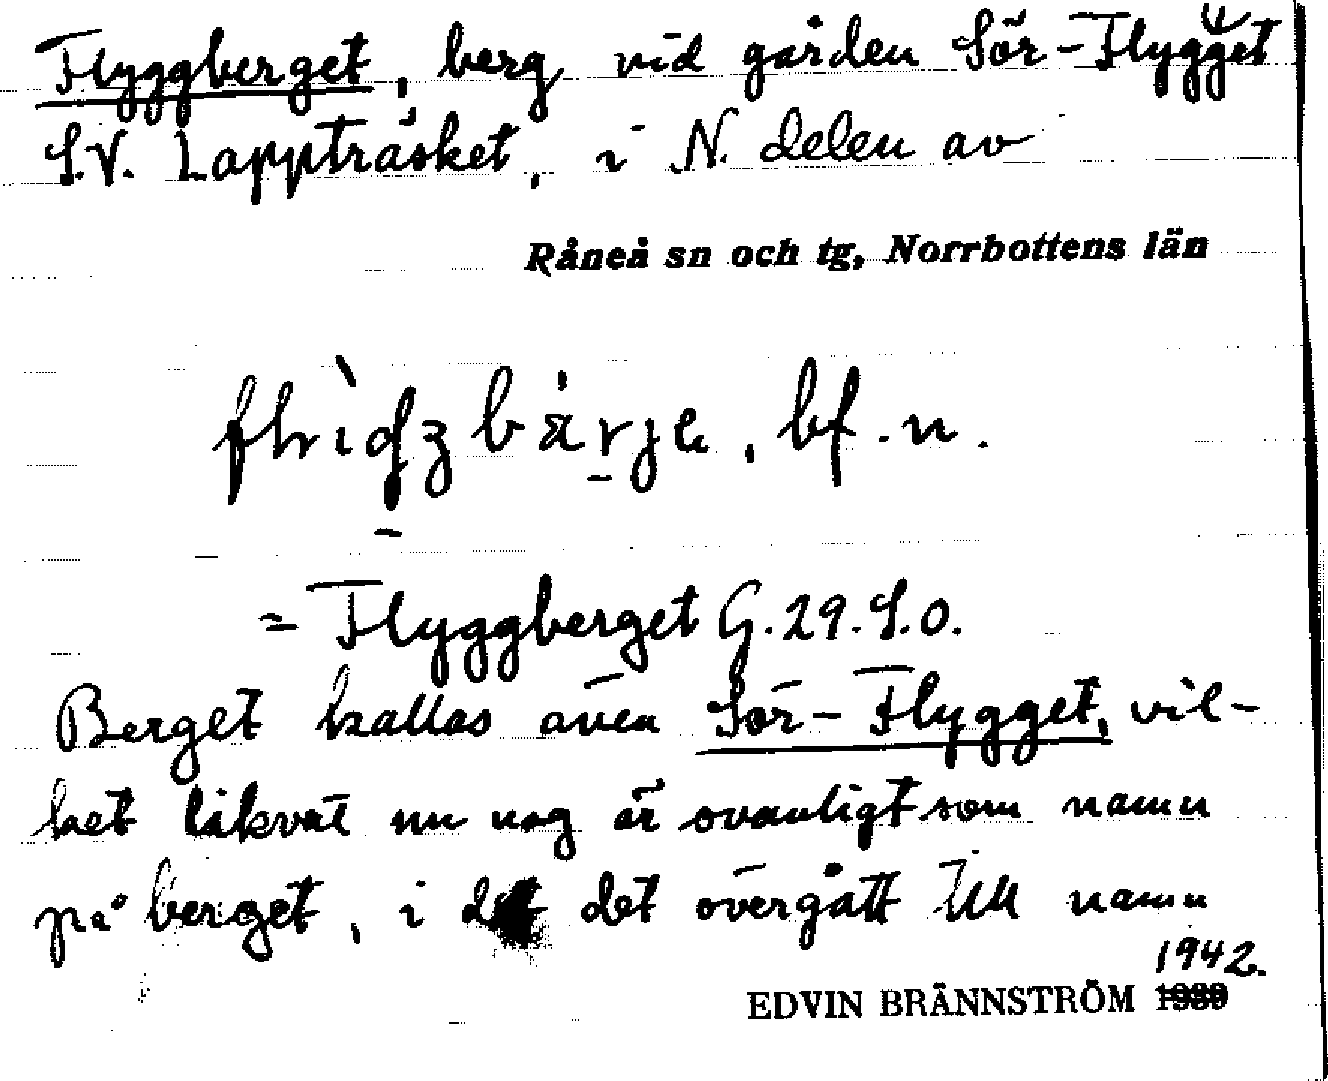 Flyggberget, berg vid gården Sör-Flygget
S.V. Lappträsket, i N. delen av
Råneå sn och tg, Norrbottens län
bf. n.
= Flyggberget G. 29. S.O.
Berget kallas även Sör-Flygget, vil-
ket likväl nu nog är ovanligt som namn
på berget, i det det övergått till namn
1942.
EDVIN BRÄNNSTRÖM 1939